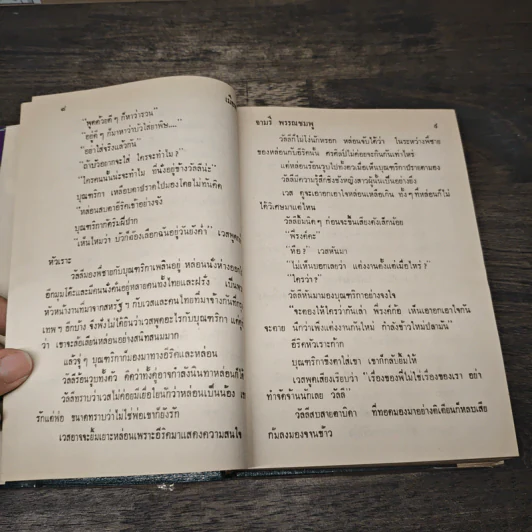 ๘
"พูดด้วยดี ๆ ก็หาว่ารวน"
"อยู่ดี ๆ ก็มาหาว่าบัวใส่ยาพิษ...."
"อย่าใส่จริงแล้วกัน"
"ถ้าบัวอยากจะใส่ ใครจะทำไม ?"
"ใครคนนั้นน่ะจะทำไม
บุณฑริกา เหลียบตาปราดไปมองโดยไม่ทันคิด
"หล่อนสบตาอีริคเข้าอย่างจัง
บุณฑริกาก็ครึ่มฝีปาก
"เห็นไหมว่า บัวก็ต้องเลือกฉันอยู่วันยังค่ำ"
หัวเราะ
วัลลีมองพี่ชายกับบุณฑริกาเพลินอยู่
อีกมุมโต๊ะและมีคนนั่งคั่นอยู่หลายคนทั้งไทยและฝรั่ง
หัวหน้างานที่มาจากสหรัฐ ฯ กับเวสและคนไทยที่มาจ้าง
เทพ ฯ อีกบ้าง จึงฟังไม่ได้ยินว่าเวสพูดอะไรกับบุณฑริกา แต่ดู
ว่า เขาจะล้อเลียนหล่อนอย่างสนิทสนมมาก
แล้วจู่ ๆ บุณฑริกาก็มองมาทางอีริคและหล่อน
วัลลีร้อนวูบทั้งตัว คิดว่าทั้งคู่อาจกำลังนินทาหล่อนก็ได้
วัลลีทราบว่าเวสไม่ค่อยมีเยื่อใยนักที่ว่าหล่อนเป็นน้อง
รักแต่พ่อ ขนาดทราบว่าไม่ใช่พ่อเขาก็ยังรัก
เวสอาจจะยิ้มเยาะหล่อนเพราะอีริคมาแสดงความสนใจ
อามรี พรรณชมพู
๙
วัลลีก็ไม่โง่นักหรอก หล่อนจับได้ว่า ในระหว่างพี่ชาย
ของหล่อนกับอีริคนั้น ศรศิลป์ไม่ค่อยจะกินกันเท่าไหร่
แต่หล่อนร้อนวูบไปทั้งตัวเมื่อเห็นบุณฑริกาปรายตามอง
วัลลีมีความรู้สึกชิงชังหญิงสาวผู้นั้นเป็นอย่างยิ่ง
เวส ดูจะเอาอกเอาใจหล่อนเหลือเกิน ทั้ง ๆ ที่หล่อนก็ไม่
ได้วิเศษมาแต่ไหน
วัลลีอื้มนิด ๆ ก่อนจะขึ้นเสียงดังเล็กน้อย
"พี่รงค์คะ"
"หือ ?" เวสหันมา
"ไม่เห็นบอกเลยว่า แต่งงานตั้งแต่เมื่อไหร่ ?"
"ใครว่า ?"
วัลลีหันมามองบุณฑริกาอย่างจงใจ
"จะคอยให้ใครว่ากันเล่า พี่รงค์ก้อ เห็นเอาอกเอาใจกัน
จะตาย นึกว่าเพิ่งแต่งงานกันใหม่ กำลังข้าวใหม่ปลามัน"
อีริคหัวเราะก๊าก
บุณฑริกาขึงตาใส่เขา เขาก็กลับยิ้มให้
เวสพูดเสียงเรียบว่า "เรื่องของพี่ไม่ใช่เรื่องของเรา อย่า
ทำจัดจ้านนักเลย วัลลี"
วัลลีสบสายตามิดา ที่ทอดมองมาอย่างตำเตียนก็หลบเสีย
ก้มลงมองจานข้าว